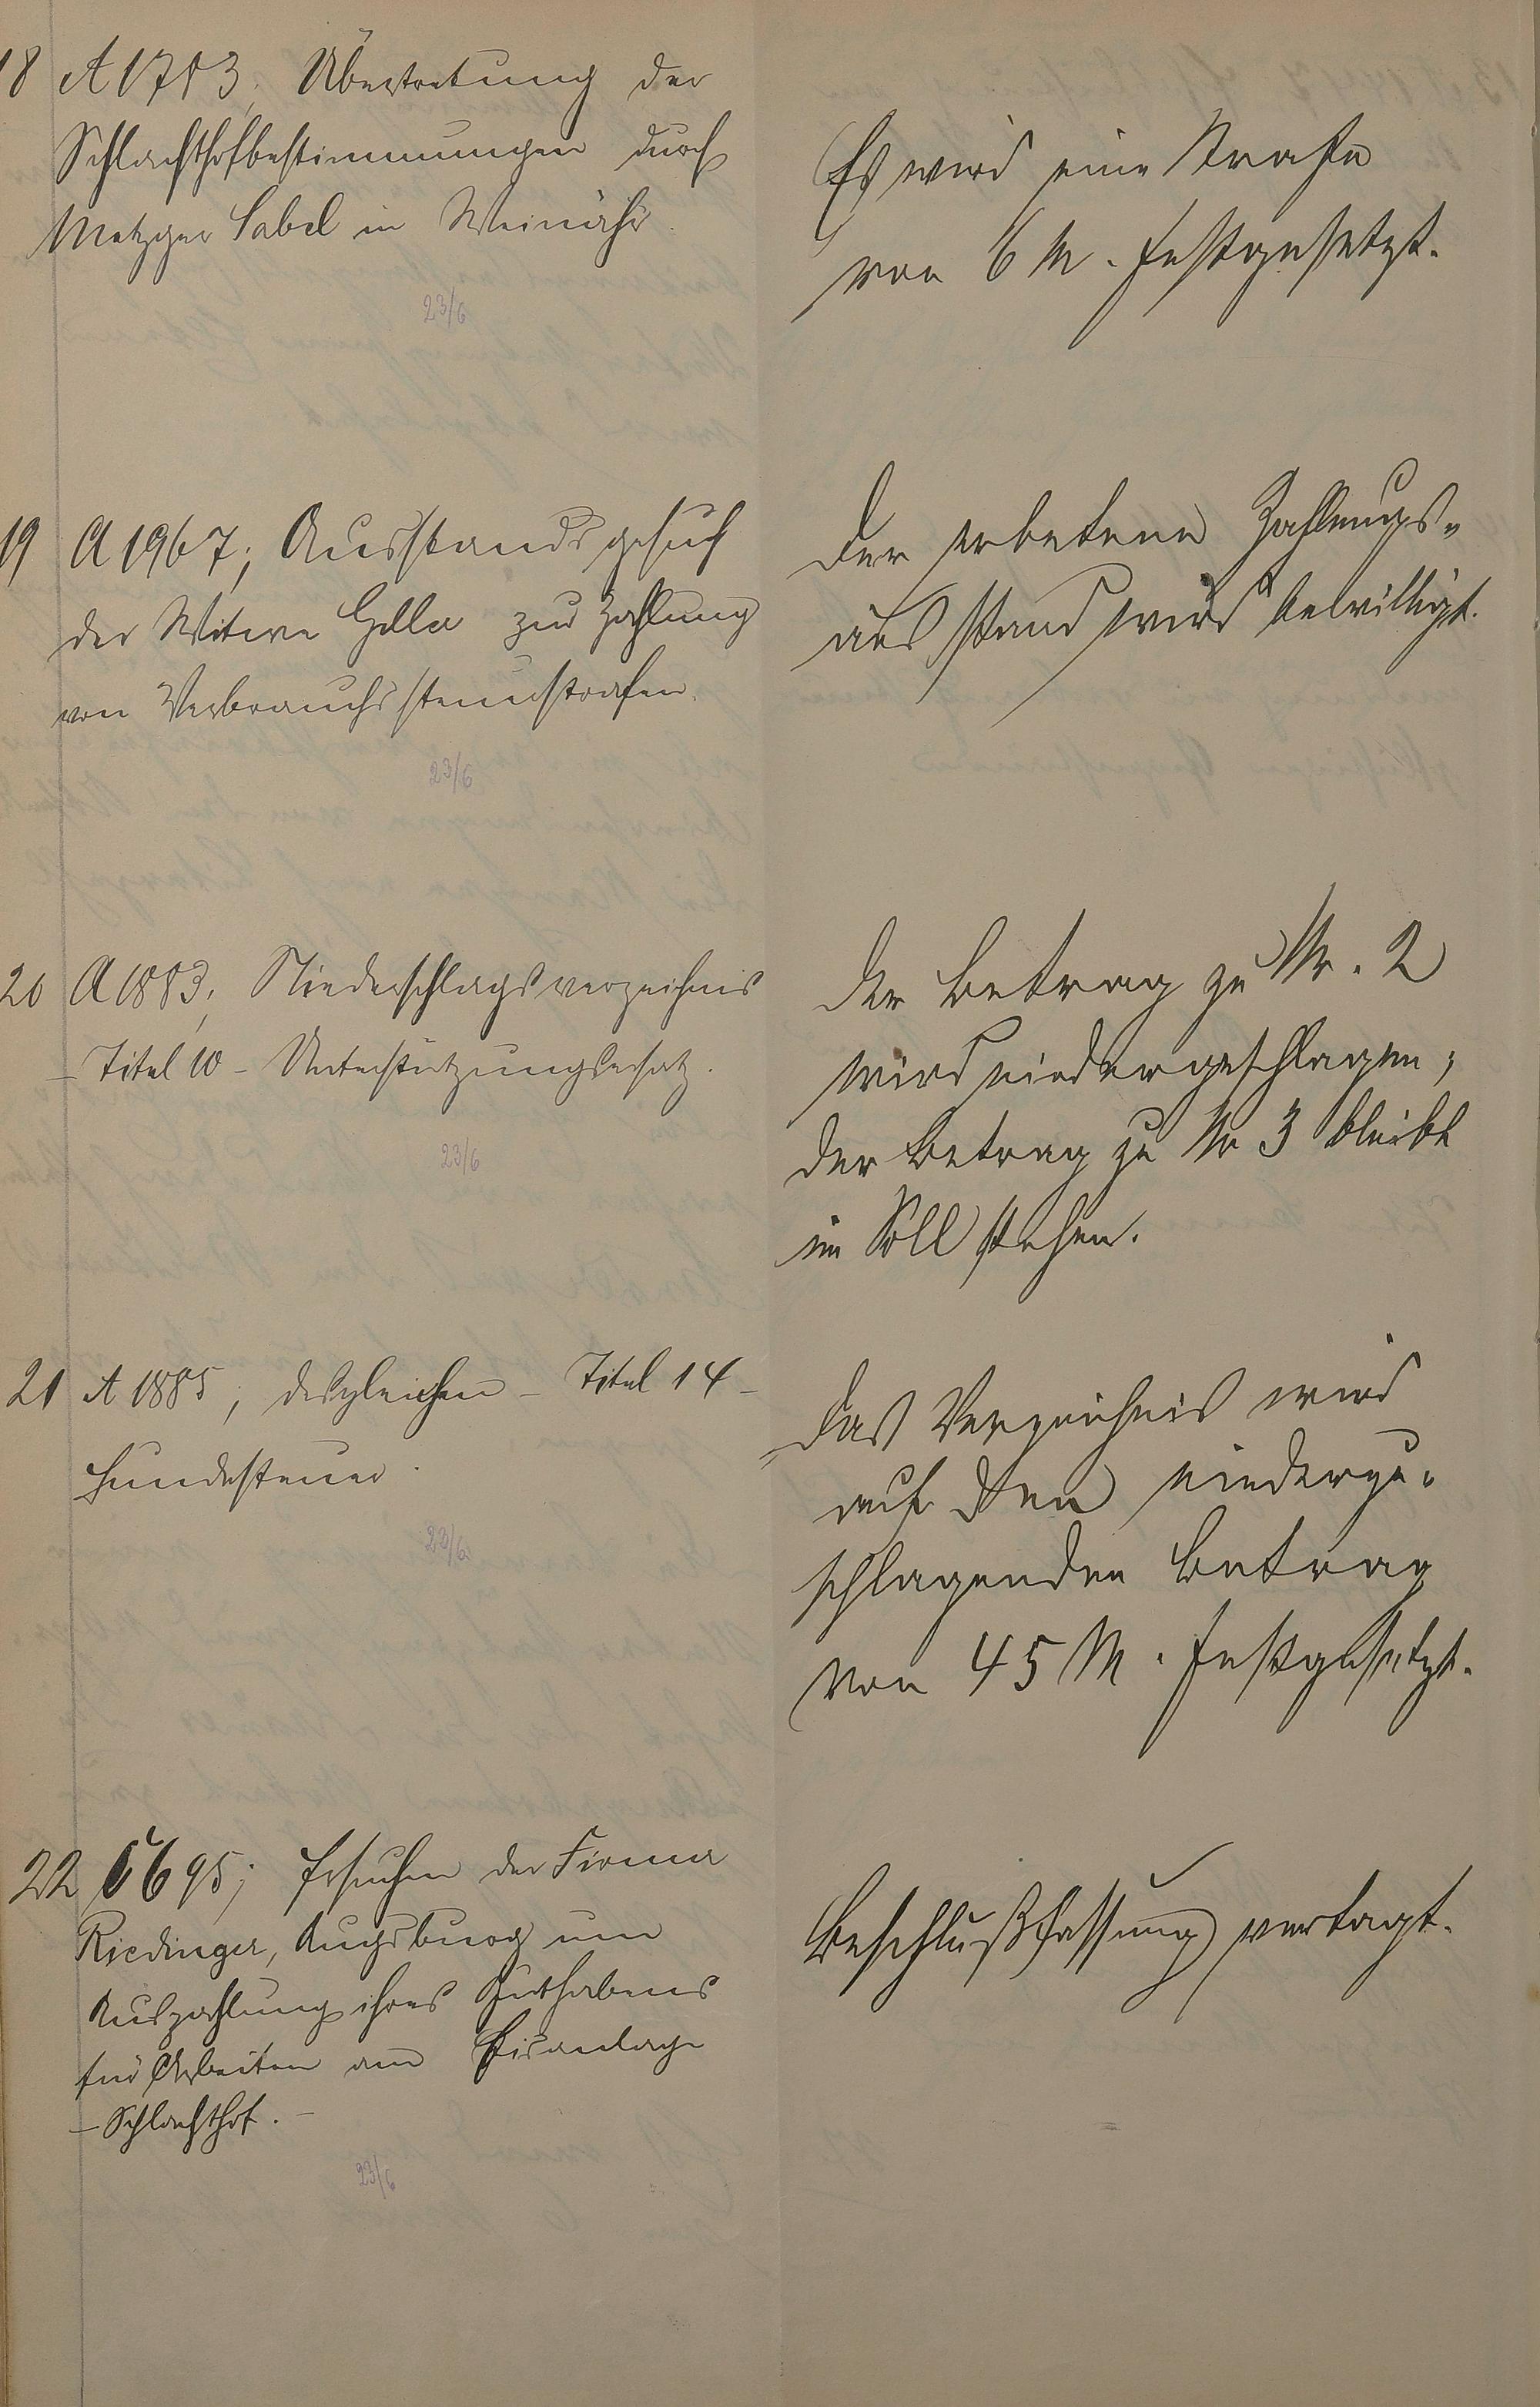 18 A 1783; Übertretung der
Schlachthofbestimmungen durch
Metzger Sabel in Weinähr.
23/6
Es wird eine Strafe
von 6 M. festgesetzt.
19 A 1967; Ausstandsgesuch
der Witwe zur Zahlung
von Verbrauchssteuerstrafen.
23/6
Der erbetene Zahlungs-
ausstand wird bewilligt.
20 A 1883; Niederschlagsverzeichnis
- Titel 10 - Unterstützungsersatz.
23/6
Der Betrag zu Nr. 2
wird niedergeschlagen;
der Betrag zu Nr 3 bleibt
im Soll stehen.
21 A 1885; desgleichen - Titel 14 -
Hundesteuer.
23/6
Das Verzeichnis wird
auf den niederzu-
schlagenden Betrag
von 45 M. festgesetzt.
22 C 695; Ersuchen der Firma
Riedinger, Augsburg um
Auszahlung ihres Guthabens
für Arbeiten an Eisanlage
- Schlachthof. -
23/6
Beschlußfassung vertagt.